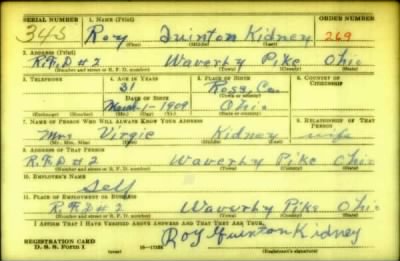 SERIAL NUMBER 1. NAME (Print) ORDER NUMBER
345 Roy Quinton Kidney 269
(First) (Middle) (Last)
2. ADDRESS (Print)
R.F.D #2 Waverly Pike Ohio
(Number and street or R. F. D. number) (Town) (County) (State)
3. TELEPHONE 4. AGE IN YEARS 5. PLACE OF BIRTH 6. COUNTRY OF CITIZENSHIP
31 Ross, Co.
DATE OF BIRTH (Town or county)
March-1-1909 Ohio
(Exchange) (Number) (Mo.) (Day) (Yr.) (State or country)
7. NAME OF PERSON WHO WILL ALWAYS KNOW YOUR ADDRESS 8. RELATIONSHIP OF THAT PERSON
Mrs Virgie Kidney wife
(Mr., Mrs., Miss) (First) (Middle) (Last)
9. ADDRESS OF THAT PERSON
R.F.D #2 Waverly Pike Ohio
(Number and street or R. F. D. number) (Town) (County) (State)
10. EMPLOYER'S NAME
Self
11. PLACE OF EMPLOYMENT OR BUSINESS
R.F.D #2 Waverly Pike Ohio
(Number and street or R. F. D. number) (Town) (County) (State)
I AFFIRM THAT I HAVE VERIFIED ABOVE ANSWERS AND THAT THEY ARE TRUE.
REGISTRATION CARD
D. S. S. Form 1 Roy Quinton Kidney
(Registrant's signature)